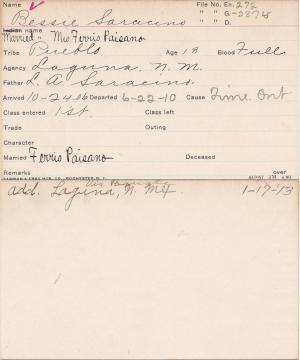 Name Bessie Saracino File No. En. 272
" " G-2878
Indian name " " D.
Married - Mrs Ferris Paisano
Tribe Pueblo Age 18 Blood Full
Agency Laguna, N. M.
Father L. A. Saracino.
Arrived 10-24-06 Departed 6-22-10 Cause Time Out
Class entered 1st. Class left
Trade Outing
Character
Married Ferris Paisano Deceased
Remarks over
add. Laguna, N. Mex 1-17-13